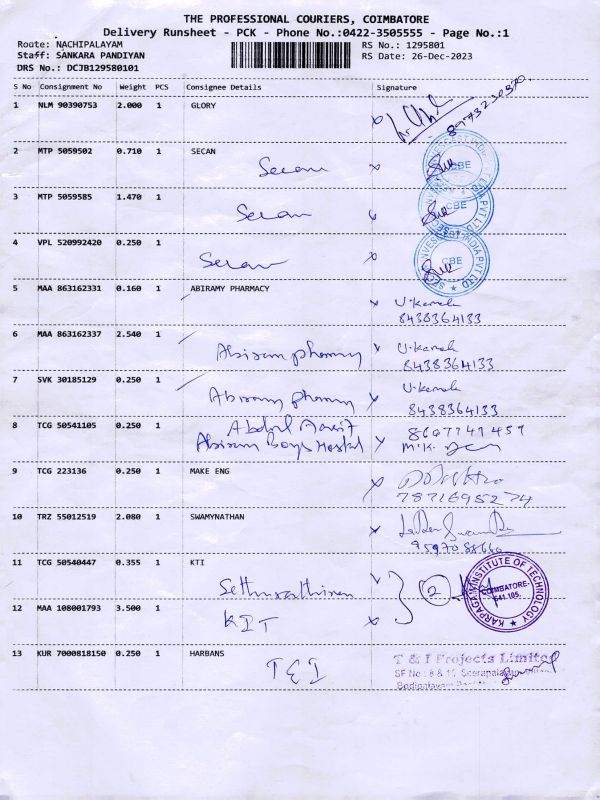 THE PROFESSIONAL COURIERS, COIMBATORE
Delivery Runsheet - PCK - Phone No.:0422-3505555 - Page No.:1
Route: NACHIPALAYAM
RS No.: 1295801
Staff: SANKARA PANDIYAN
RS Date: 26-Dec-2023
DRS No.: DCJB129580101
S No Consignment No Weight PCS Consignee Details Signature
1 NLM 90390753 2.000 1 GLORY
2 MTP 5059502 0.710 1 SECAN
Secan
CBE
3 MTP 5059585 1.470 1
Secan
CBE
4 VPL 520992420 0.250 1
Secan
CBE
5 MAA 863162331 0.160 1 ABIRAMY PHARMACY
U.Kamala
8438364133
6 MAA 863162337 2.540 1
Abiramy pharmacy U.Kamala
8438364133
7 SVK 30185129 0.250 1
Abiramy pharmacy U.Kamala
8438364133
8 TCG 50541105 0.250 1
Abdul
8667741459
Abiram Boys Hostel M.K.
9 TCG 223136 0.250 1 MAKE ENG
7871695274
10 TRZ 55012519 2.080 1 SWAMYNATHAN
11 TCG 50540447 0.355 1 KTI
2
KARPAGAM INSTITUTE OF TECHNOLOGY
COIMBATORE-
641 105.
12 MAA 108001793 3.500 1
KIT
13 KUR 7000818150 0.250 1 HARBANS
T & I
T & I Projects Limited
SF No : 8 & 10, Seerapalayam
Bodipalayam